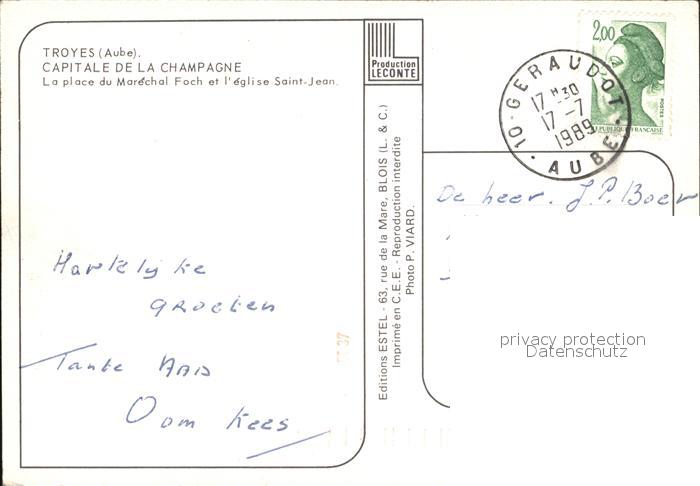 TROYES (Aube).
CAPITALE DE LA CHAMPAGNE
La place du Maréchal Foch et l'église Saint-Jean.
Hartelijke
groeten
Tante AAD
Oom Kees
Production
LECONTE
Editions ESTEL - 63, rue de la Mare, BLOIS (L. & C.)
Imprimé en C.E.E. - Reproduction interdite
Photo P. VIARD.
10 - GERAUDOT
17 H 30
17 - 7
1989
AUBE
2,00
POSTES
REPUBLIQUE FRANCAISE
De heer. J.P. Boer
privacy protection
Datenschutz